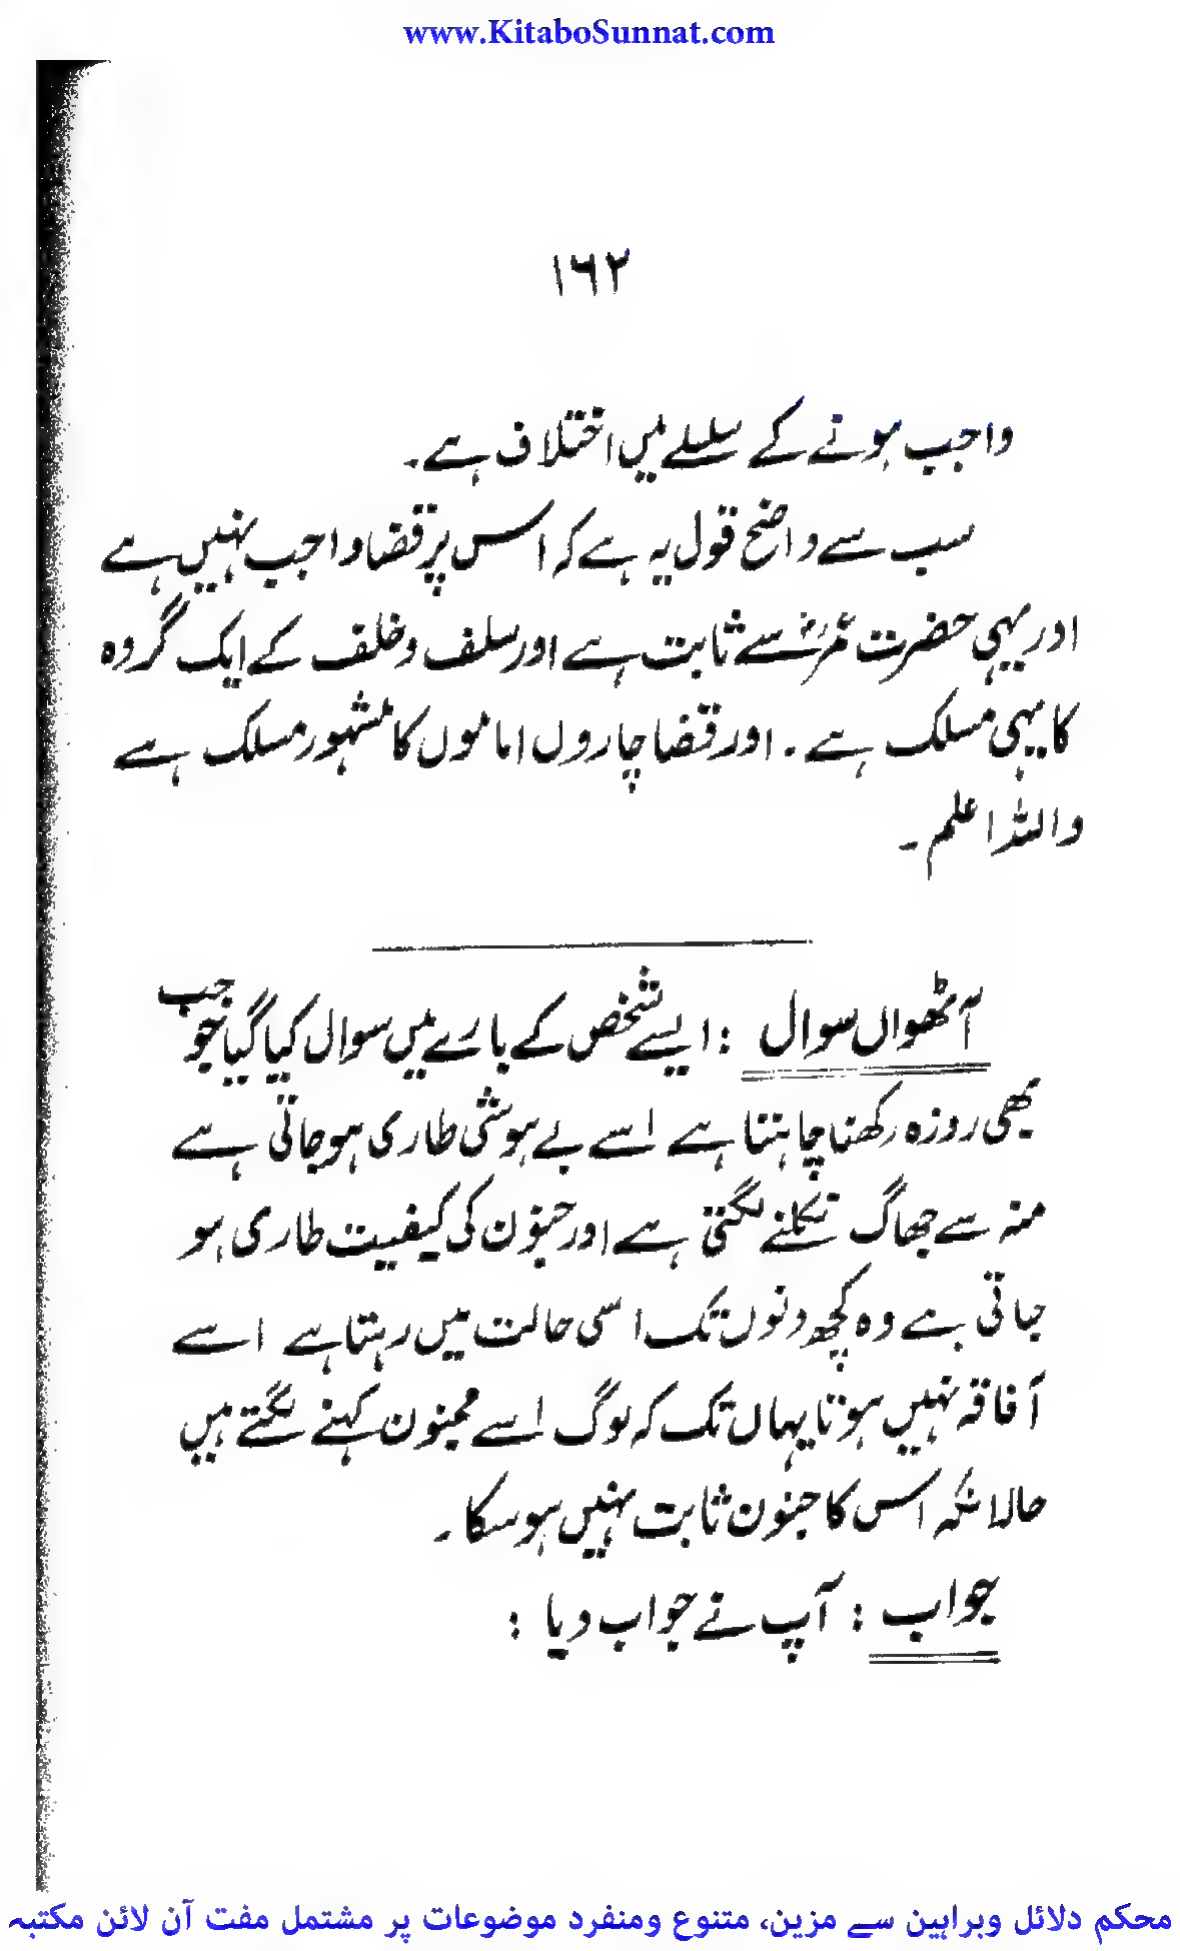 www.KitaboSunnat.com
۱۶۲
واجب ہونے کے سلسلے میں اختلاف ہے۔
سب سے واضح قول یہ ہے کہ اس پر قضا واجب نہیں ہے
اور یہی حضرت عمرؓ سے ثابت ہے اور سلف و خلف کے ایک گروہ
کا یہی مسلک ہے۔ اور قضا چاروں اماموں کا مشہور مسلک ہے
واللہ اعلم۔
آٹھواں سوال : ایسے شخص کے بارے میں سوال کیا گیا جو جب
بھی روزہ رکھنا چاہتا ہے اسے بے ہوشی طاری ہو جاتی ہے
منہ سے جھاگ نکلنے لگتی ہے اور جنون کی کیفیت طاری ہو
جاتی ہے وہ کچھ دنوں تک اسی حالت میں رہتا ہے اسے
آفاقہ نہیں ہوتا یہاں تک کہ لوگ اسے مجنون کہنے لگتے ہیں
حالانکہ اس کا جنون ثابت نہیں ہو سکا۔
جواب : آپ نے جواب دیا :
محکم دلائل وبراہین سے مزین، متنوع ومنفرد موضوعات پر مشتمل مفت آن لائن مکتبہ